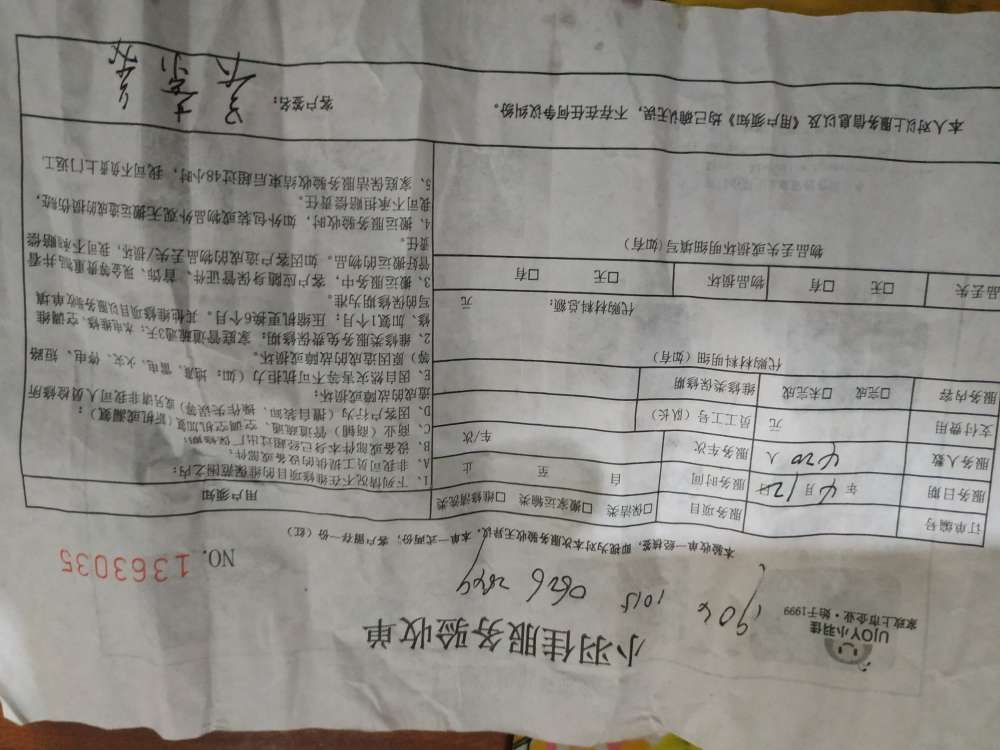 UJOY小羽佳
家政上市企业·始于1999
小羽佳服务验收单
1904 1015 0626 2049
NO. 1363035
本验收单一经签核，即视为对本次服务验收无异议，本单一式两份，客户留存一份（红）
订单编号
服务项目
□保洁类 □搬家运输类 □维修清洗类
服务日期
年 4月12日
服务时间
自 至 止
服务人数
人
服务车次
车/次
支付费用
元
员工工号（队长）
服务内容
□完成 □未完成
维修类保修期
代购材料明细（如有）
代购材料总额： 元
品丢失
□无 □有
物品损坏
□无 □有
物品丢失或损坏明细填写（如有）
用户须知
1、下列情况不在维修项目的维保范围之内：
A、非我司员工提供的设备或部件；
B、设备或部件本身已经超过出厂保修期；
C、商业（商铺）管道疏通、空调空机加氟（新机或漏氟）；
D、因客户行为（擅自装卸、操作失误等）或另请非我司人员检修所
造成的故障或损坏；
E、因自然灾害等不可抗拒力（如：地震、雷电、火灾、停电、短路
等）原因造成的故障或损坏。
2、维修类服务免费保修期：家庭管道疏通3天；水电维修、空调维
修、加氟1个月；压缩机更换6个月。其他维修项目以服务验收单填
写的保修期为准。
3、搬运服务中，客户应随身保管证件、首饰、现金等贵重物并看
管好搬运的物品。如因客户造成的物品丢失/损坏，我司不承担赔偿
责任。
4、搬运服务验收时，如外包装或物品外观无搬运造成的损伤痕，
我司不承担赔偿责任。
5、家庭保洁服务验收结束后超过48小时，我司不负责上门返工
本人对以上服务信息以及《用户须知》均已确认无误，不存在任何争议纠纷。
客户签名：